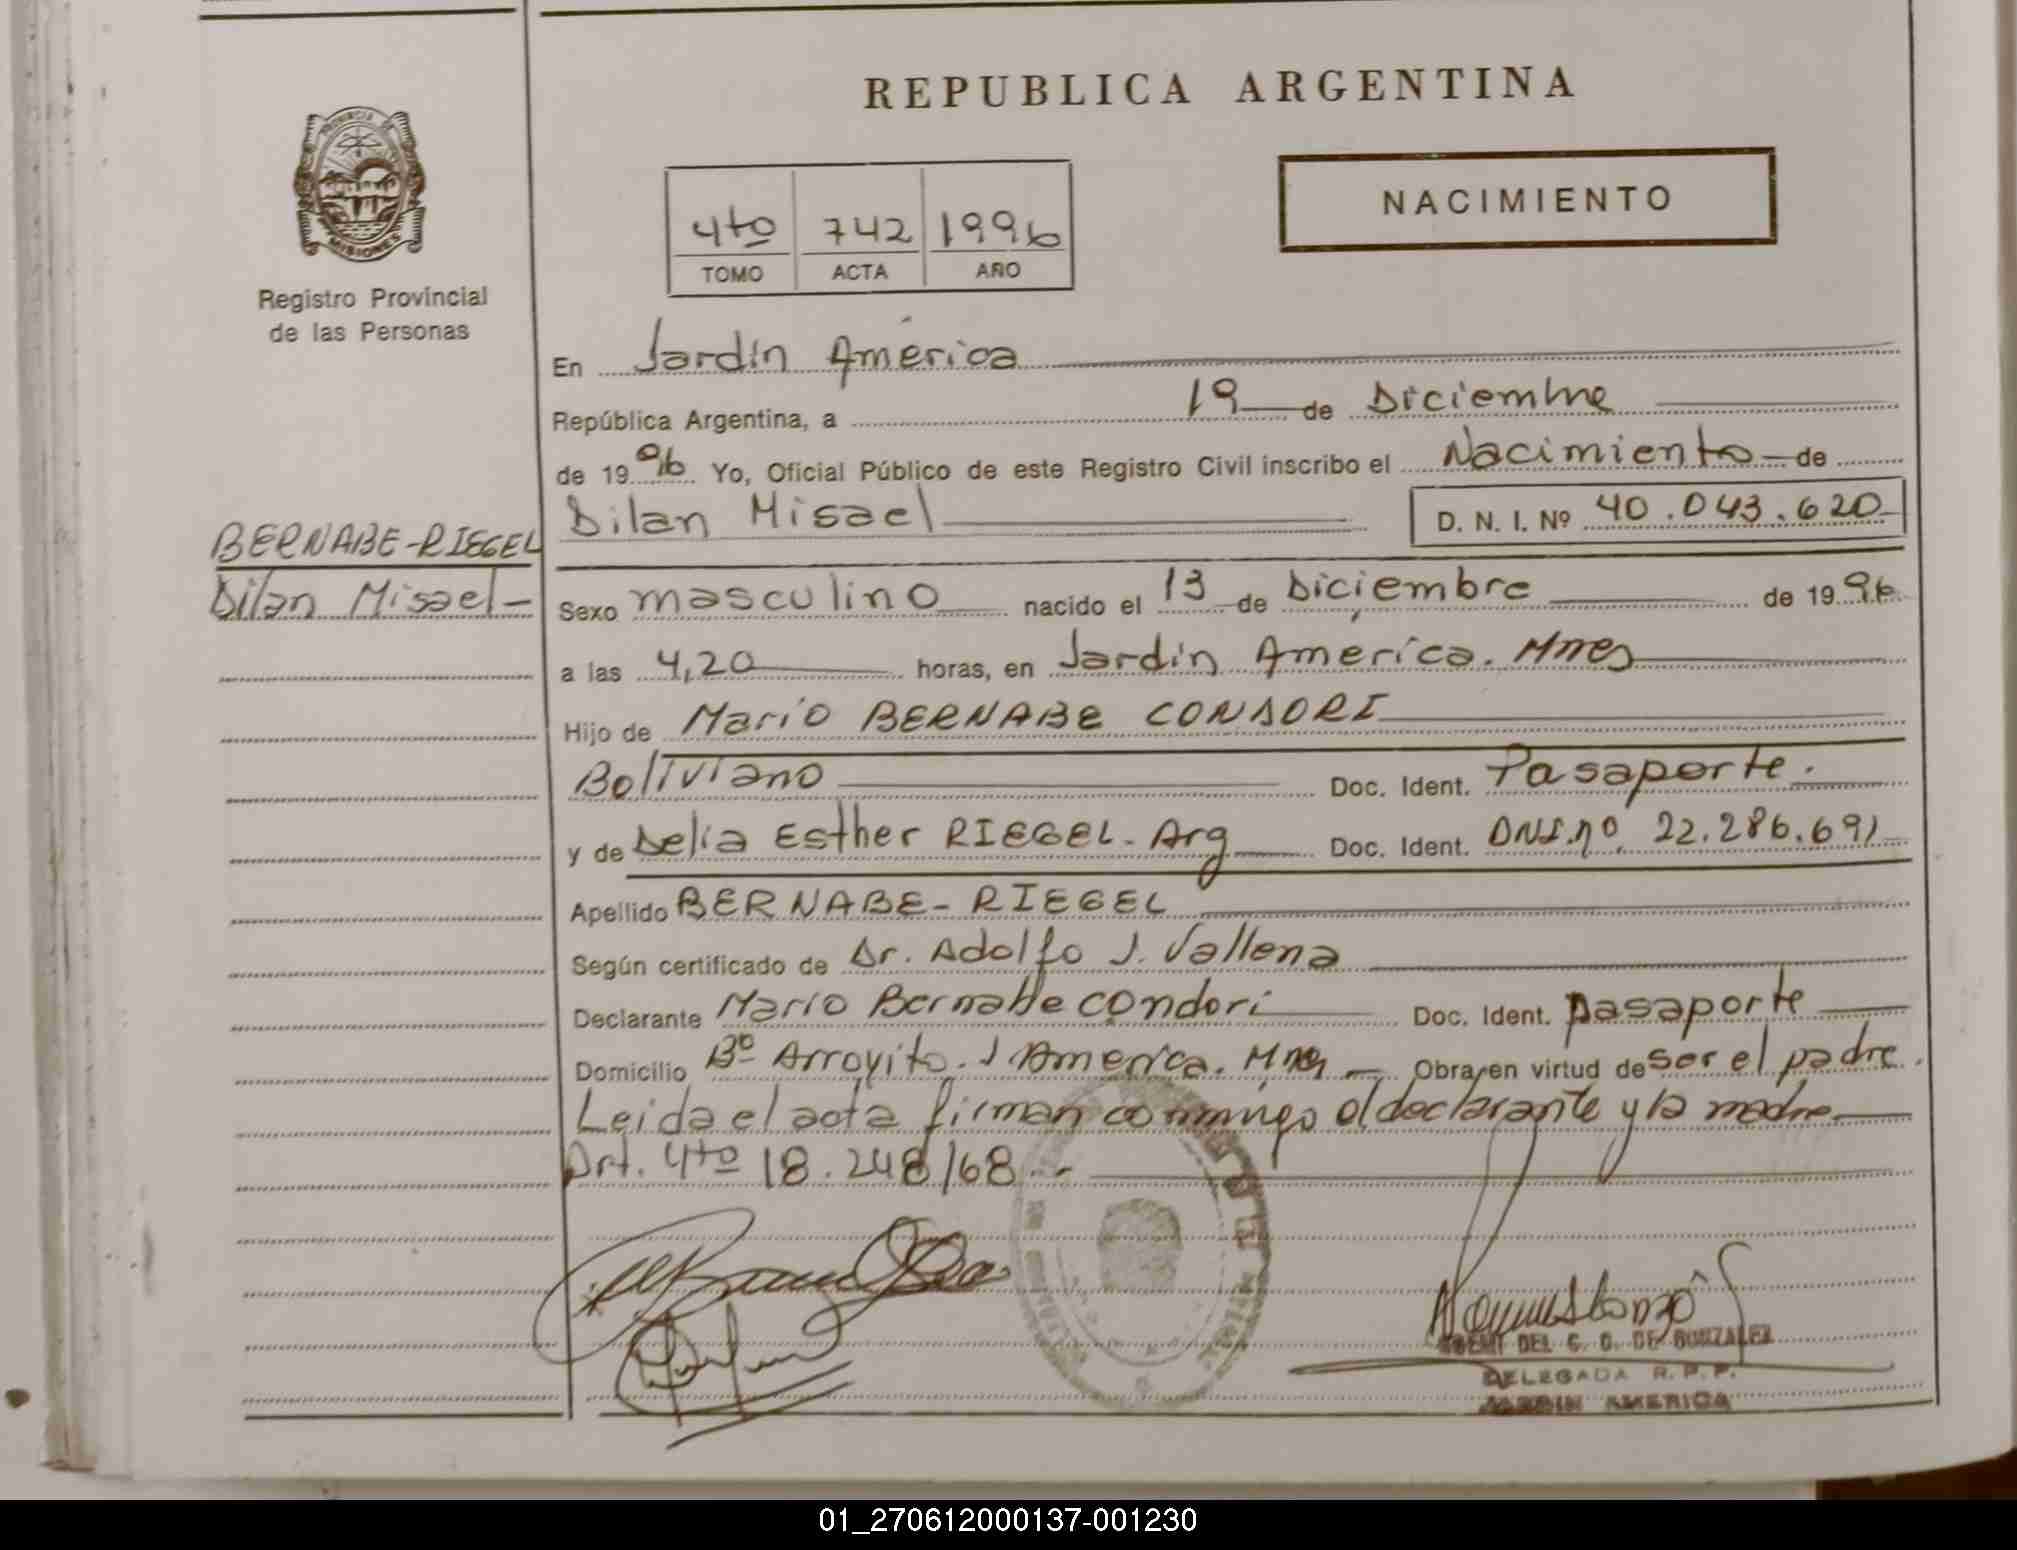 REPUBLICA ARGENTINA
PROVINCIA DE
MISIONES
Registro Provincial
de las Personas
4to 742 1996
TOMO ACTA AÑO
NACIMIENTO
En Jardín América
República Argentina, a 19 de Diciembre
de 19 96 Yo, Oficial Público de este Registro Civil inscribo el Nacimiento de
Dilan Misael D. N. I. Nº 40.043.620
BERNABE-RIEGEL
Dilan Misael-
Sexo masculino nacido el 13 de Diciembre de 19 96
a las 4,20 horas, en Jardín América. Mnes
Hijo de Mario BERNABE CONDORI
Boliviano Doc. Ident. Pasaporte.
y de Delia Esther RIEGEL-Arg Doc. Ident. DNI.nº. 22.286.691
Apellido BERNABE-RIEGEL
Según certificado de Dr. Adolfo J. Vallena
Declarante Mario Bernabe Condori Doc. Ident. pasaporte
Domicilio Bº Arroyito. J América. Mnes - Obra en virtud de ser el padre.
Leida el acta firman conmigo el declarante y la madre
Art. 4to 18.248/68.-
DEL C. D. DE GONZALEZ
DELEGADA R.P.P.
JARDIN AMERICA
01_270612000137-001230